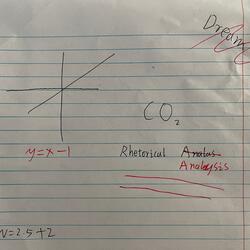 Dream
CO₂
y=x-1
Rhetorical Analas
Analysis
V=2.5+2